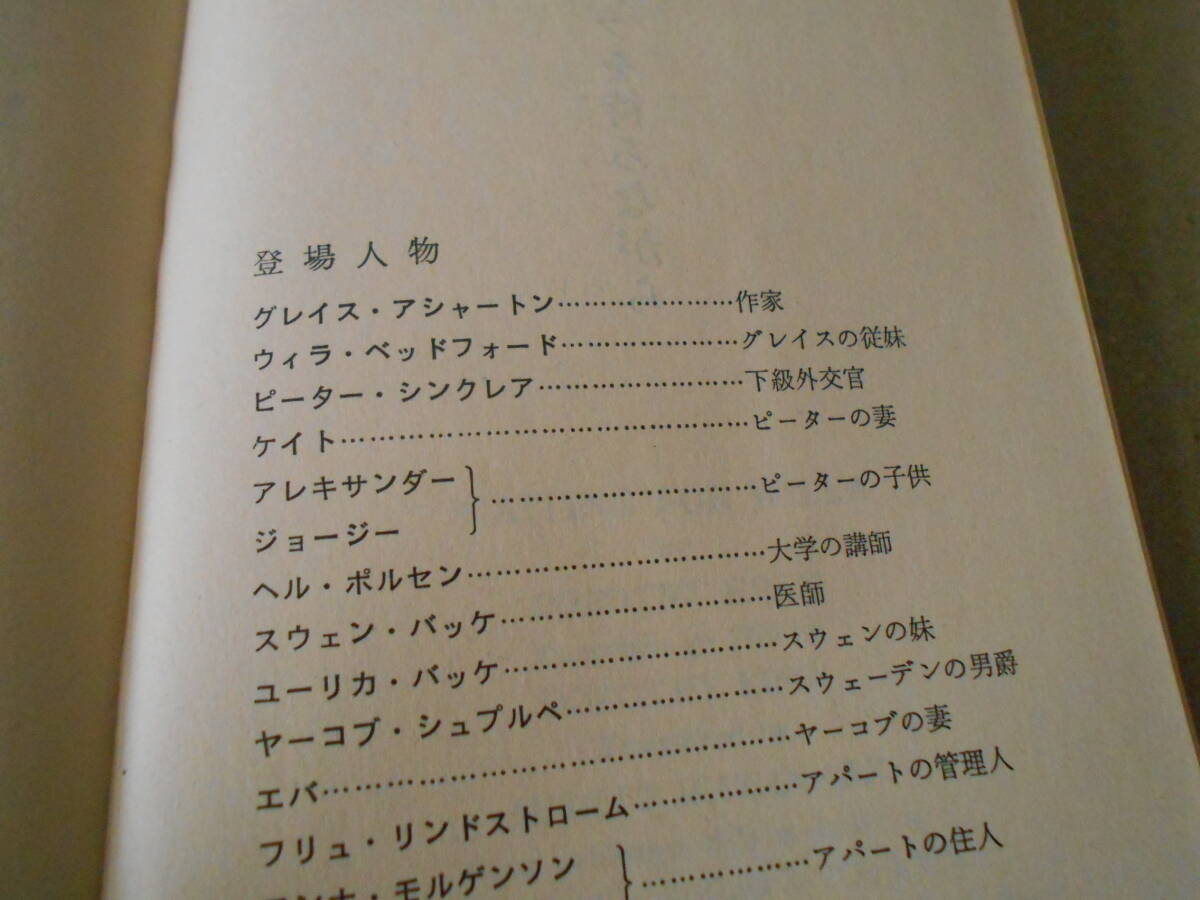 登場人物
グレイス・アシャートン…………………作家
ウィラ・ベッドフォード…………………グレイスの従妹
ピーター・シンクレア……………………下級外交官
ケイト………………………………………ピーターの妻
アレキサンダー
ジョージー
}…………………………ピーターの子供
ヘル・ポルセン……………………………大学の講師
スウェン・バッケ…………………………医師
ユーリカ・バッケ…………………………スウェンの妹
ヤーコブ・シュプルペ……………………スウェーデンの男爵
エバ…………………………………………ヤーコブの妻
フリュ・リンドストローム………………アパートの管理人
モルゲンソン
}………………アパートの住人